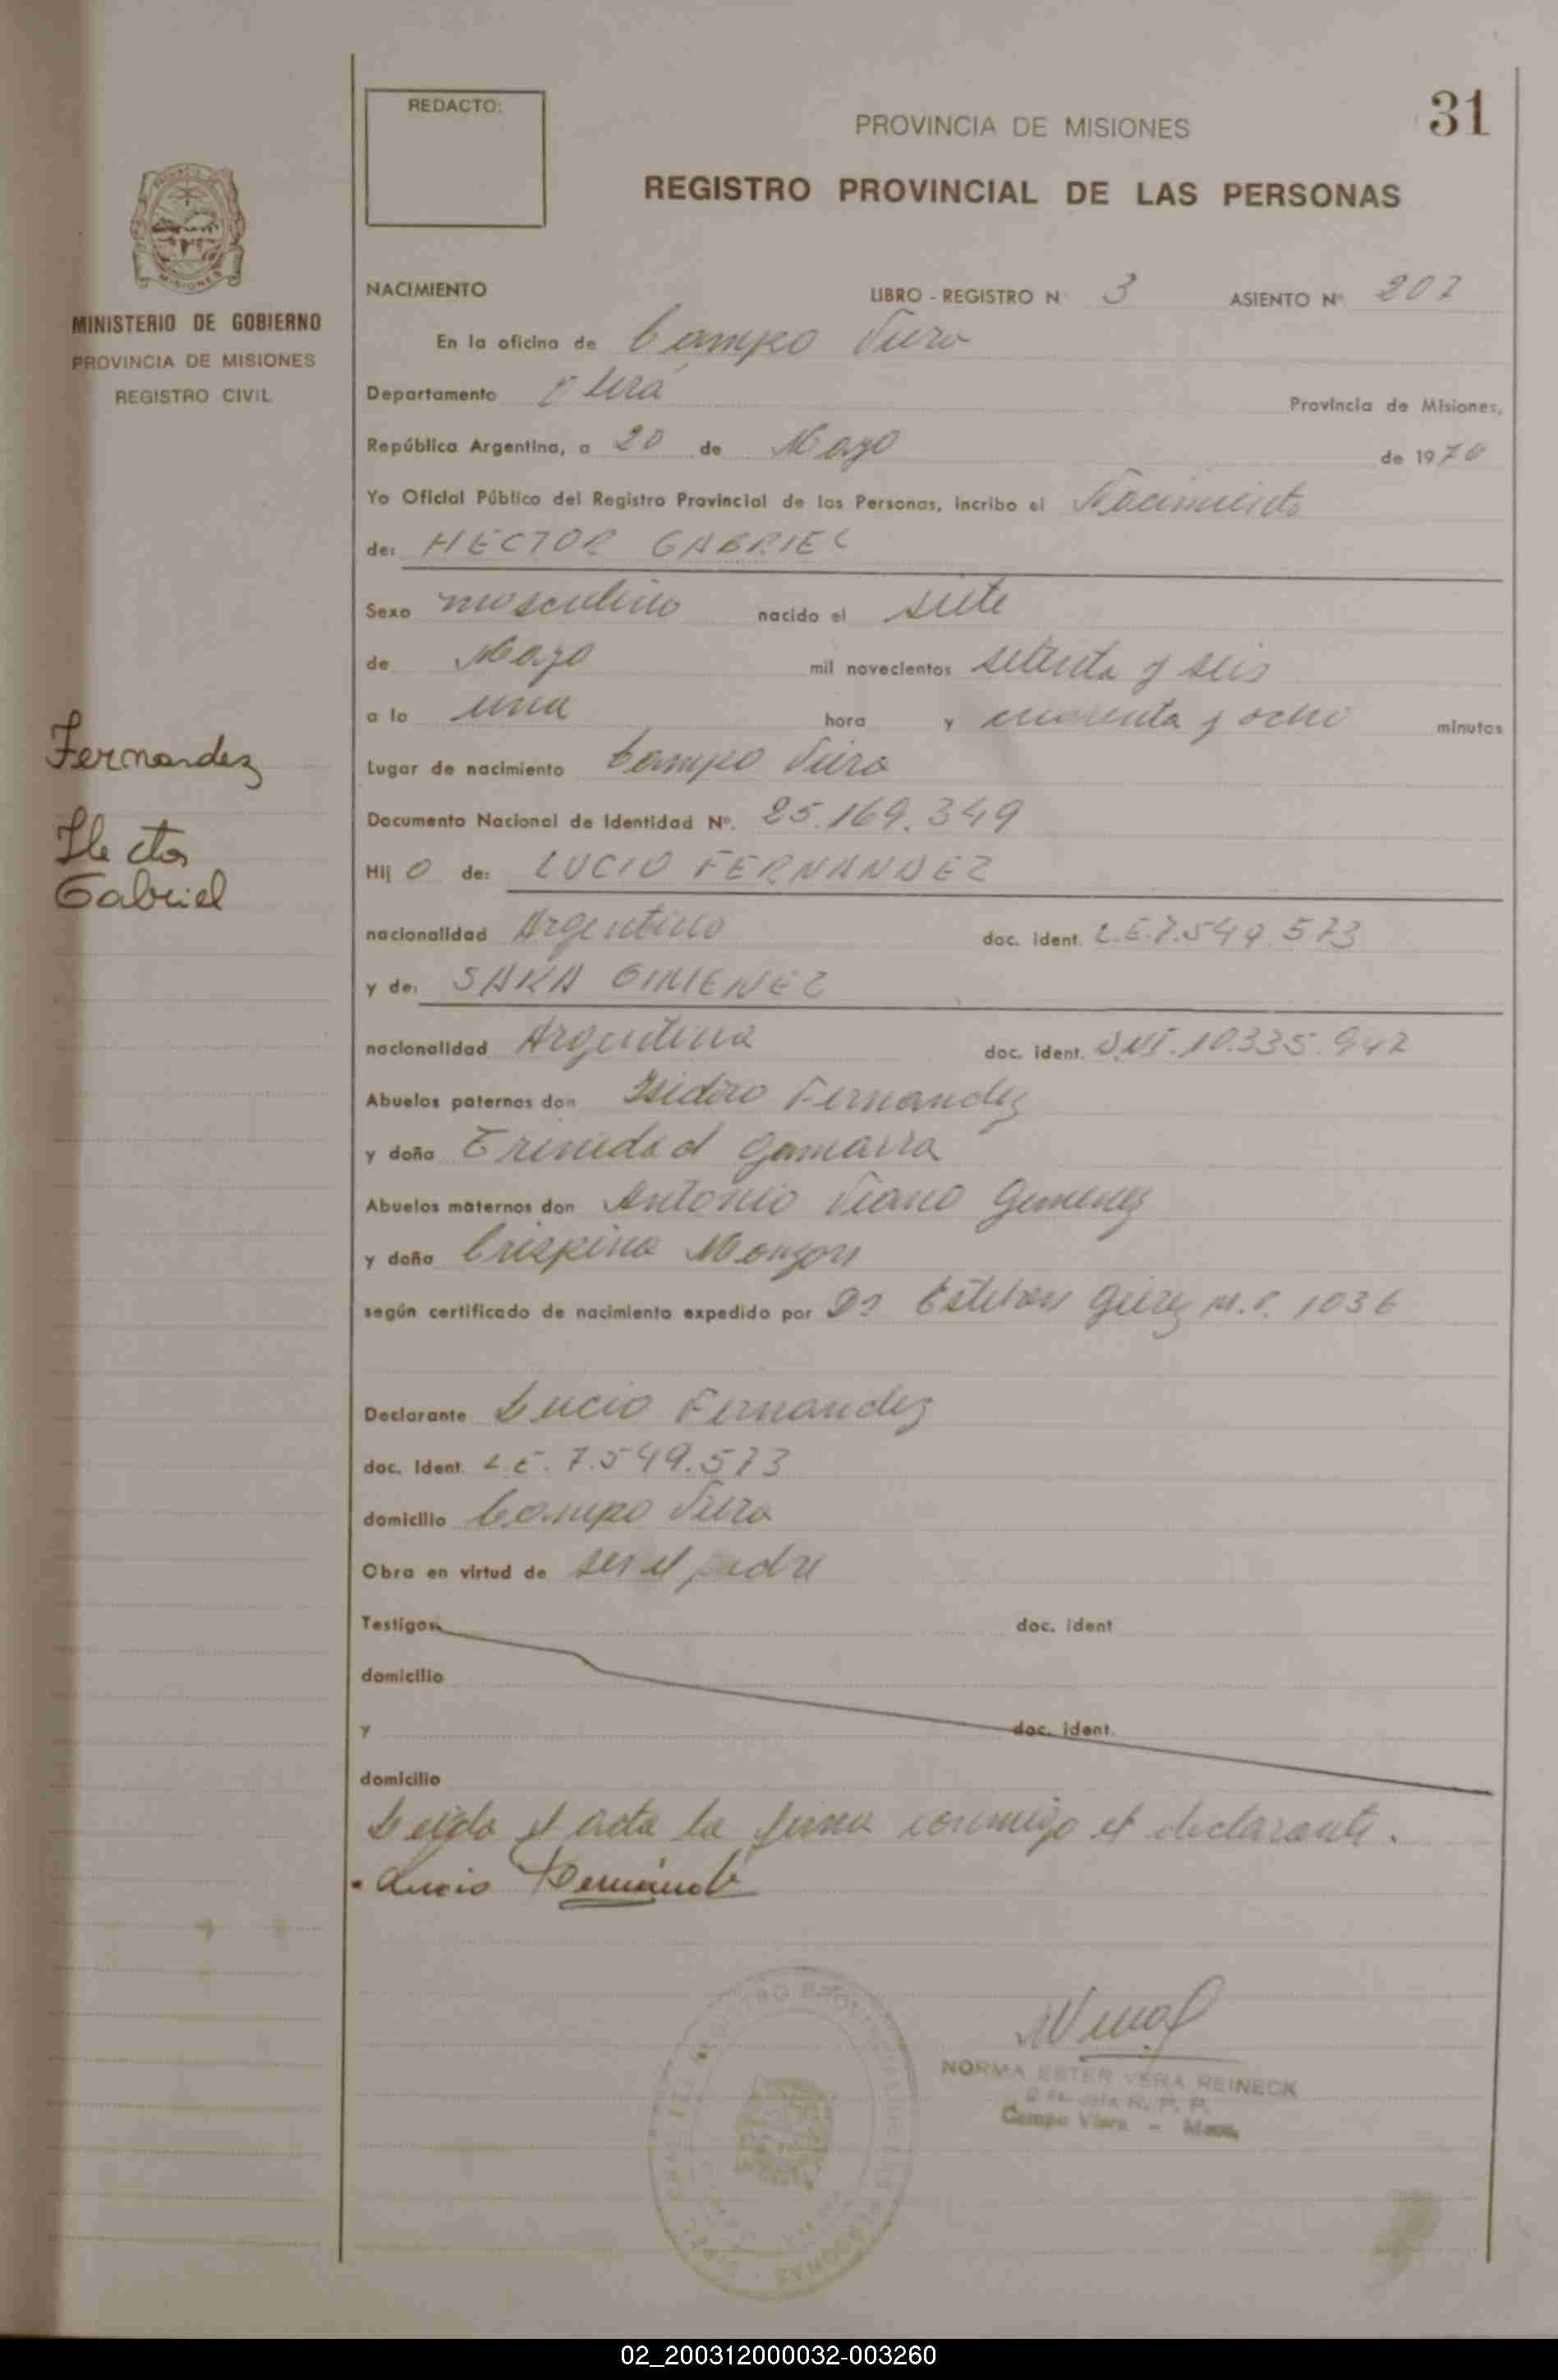 REDACTO:
PROVINCIA DE MISIONES
31
REGISTRO PROVINCIAL DE LAS PERSONAS
MINISTERIO DE GOBIERNO
PROVINCIA DE MISIONES
REGISTRO CIVIL
NACIMIENTO LIBRO - REGISTRO N 3 ASIENTO Nº 207
En la oficina de Campo Viera
Departamento Oberá Provincia de Misiones,
República Argentina, a 20 de Mayo de 1976
Yo Oficial Público del Registro Provincial de las Personas, incribo el Nacimiento
de: HECTOR GABRIEL
Sexo masculino nacido el siete
de Mayo mil novecientos setenta y seis
a la una hora y cuarenta y ocho minutos
Lugar de nacimiento Campo Viera
Documento Nacional de Identidad Nº. 25.169.349
Hij o de: LUCIO FERNANDEZ
nacionalidad Argentino doc. ident. L.E.7.549.573
y de: SARA GIMENEZ
nacionalidad Argentina doc. ident. DNI. 10.335.942
Abuelos paternos don Isidro Fernandez
y doña Trinidad Gamarra
Abuelos maternos don Antonio Gimenez
y doña Crispina Monzon
según certificado de nacimiento expedido por Dr Esteban M.P. 1036
Declarante Lucio Fernandez
doc. Ident. L.E. 7.549.573
domicilio Campo Viera
Obra en virtud de ser el padre
Testigos doc. ident
domicilio
y doc. ident.
domicilio
Leida el acta la firma conmigo el declarante.
Lucio
Fernandez
Hector
Gabriel
NORMA ESTER VERA REINECK
R. P. P.
Campo Viera - Mnes.
02_200312000032-003260